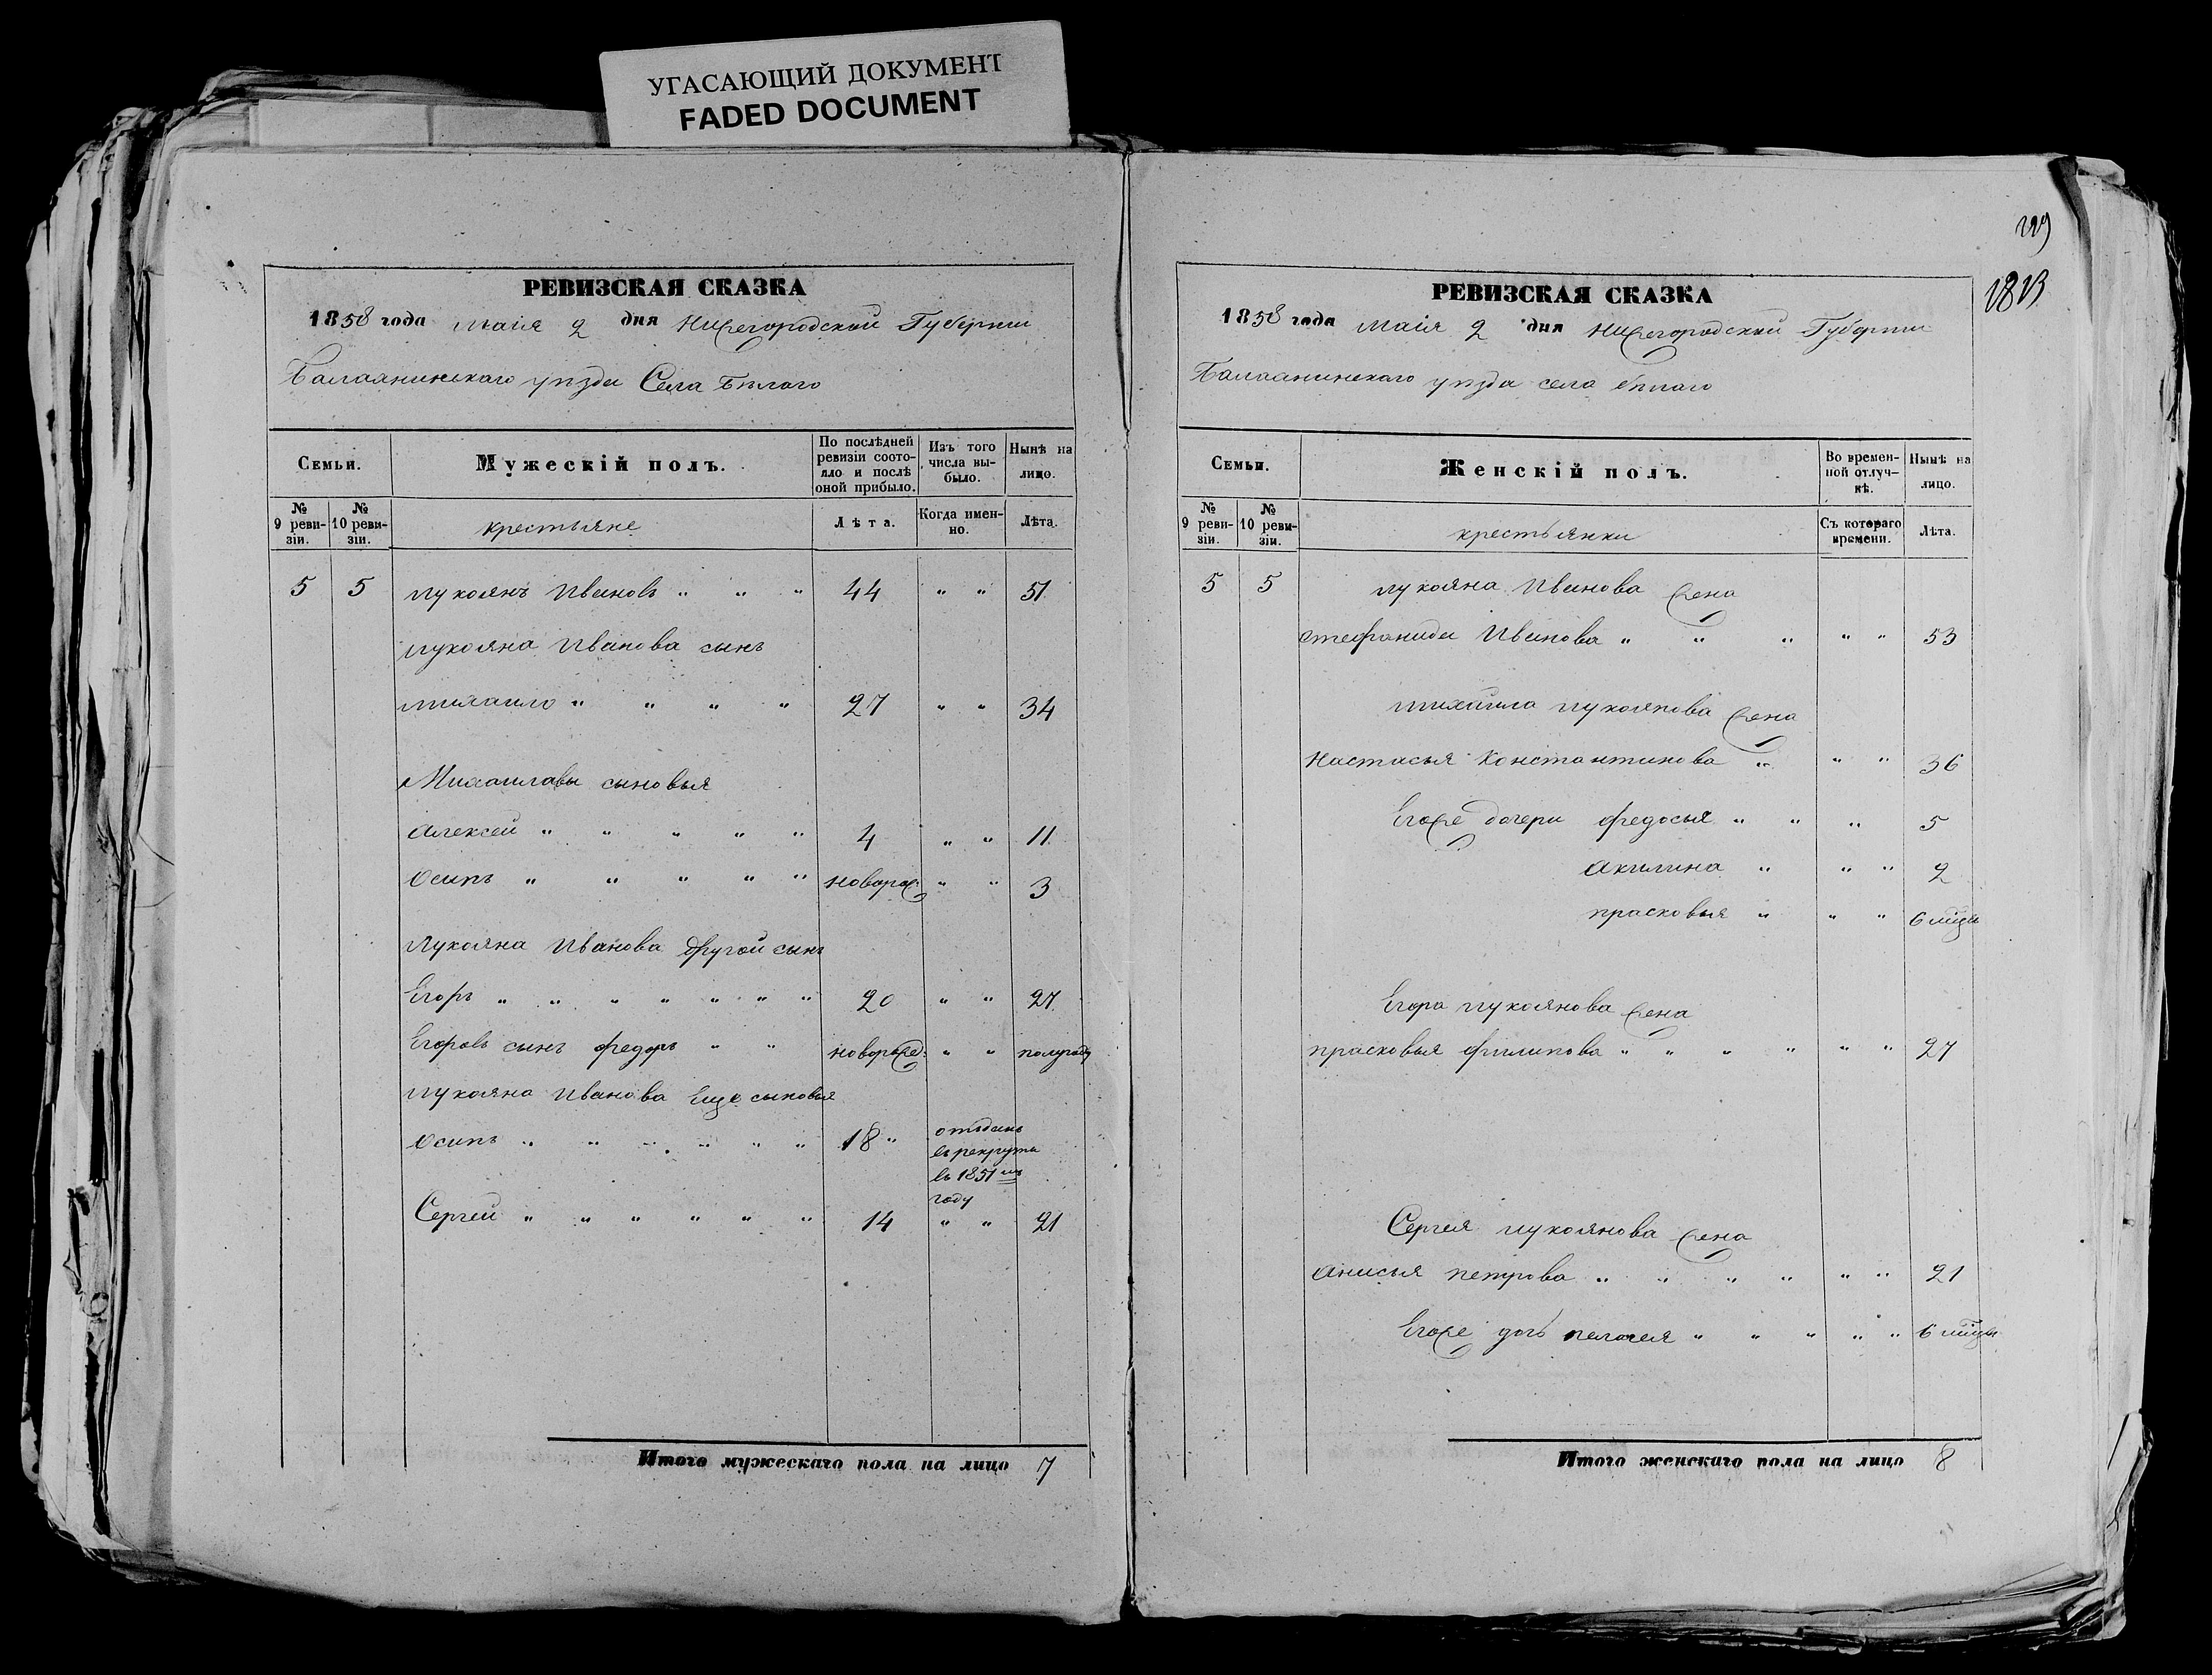 УГАСАЮЩИЙ ДОКУМЕНТ
FADED DOCUMENT
РЕВИЗСКАЯ СКАЗКА
1858 года маія 2 дня Нижегородской Губерніи
Балахнинскаго уѣзда Села Бѣлаго
Семьи.
Мужескій полъ.
По послѣдней ревизіи состояло и послѣ оной прибыло.
Изъ того числа выбыло.
Нынѣ на лицо.
№ 9 ревизіи.
№ 10 ревизіи.
крестьяне
Лѣта.
Когда именно.
Лѣта.
5 5 лукоянъ Ивановъ " " " 44 " " 51
лукояна Иванова сынъ
михаило " " " " 27 " " 34
Михаилавы сыновья
алексей " " " " " 4 " " 11
осипъ " " " " " новорож: " " 3
лукояна Иванова другой сынъ
Егоръ " " " " " " " 20 " " 27
Егоровъ сынъ федоръ " " новорожд: " " полугоду
лукояна Иванова еще сыновья
осипъ " " " " " " 18 " отъданъ
въ рекруты
въ 1851мъ
году
Сергей " " " " " " 14 " " 21
Итого мужескаго пола на лицо 7
РЕВИЗСКАЯ СКАЗКА
1858 года маія 2 дня нижегородской Губерніи
Балаанинскаго уѣзда села бѣлаго
Семьи.
Женскій полъ.
Во временной отлучкѣ.
Нынѣ на лицо.
№ 9 ревизіи.
№ 10 ревизіи.
крестьянки
Съ котораго времени.
Лѣта.
5 5 лукояна Иванова жена
стефанида Иванова " " " " " 53
михаила лукоянова жена
настасья Константинова " " " 36
Егоже дочери федосья " " " 5
акилина " " " 2
прасковья " " " 6 мцы
Егора лукоянова жена
прасковья филипова " " " " " " 27
Сергея лукоянова жена
анисья петрова " " " " " " 21
Егоже дочь пелагея " " " " " 6 мцы
Итого женскаго пола на лицо 8